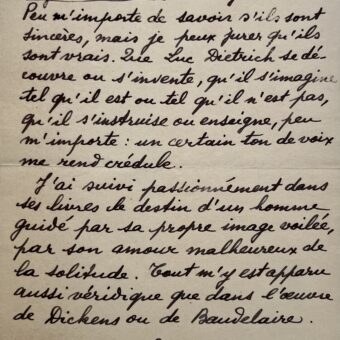 Peu m'importe de savoir s'ils sont
sincères, mais je peux jurer qu'ils
sont vrais. Que Luc Dietrich se dé-
couvre ou s'invente, qu'il s'imagine
tel qu'il est ou tel qu'il n'est pas,
qu'il s'instruise ou enseigne, peu
m'importe : un certain ton de voix
me rend crédule.
J'ai suivi passionnément dans
ses livres le destin d'un homme
guidé par sa propre image voilée,
par son amour malheureux de
la solitude. Tout m'y est apparu
aussi véridique que dans l'œuvre
de Dickens ou de Baudelaire.